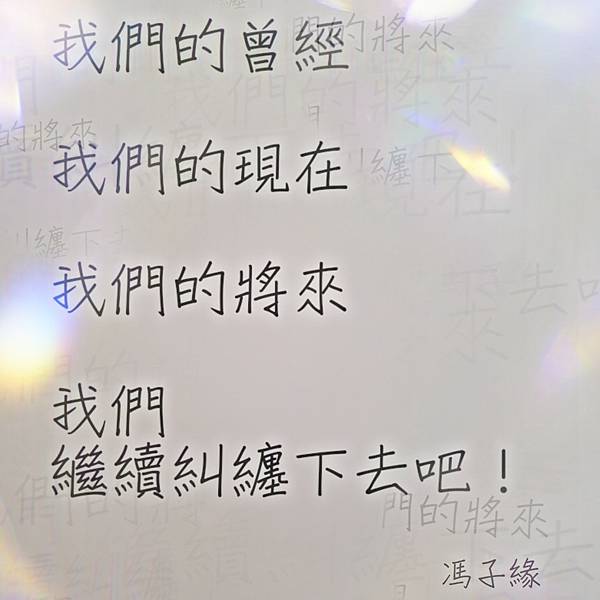 我們的曾經
我們的現在
我們的將來
我們
繼續糾纏下去吧！
馮子緣